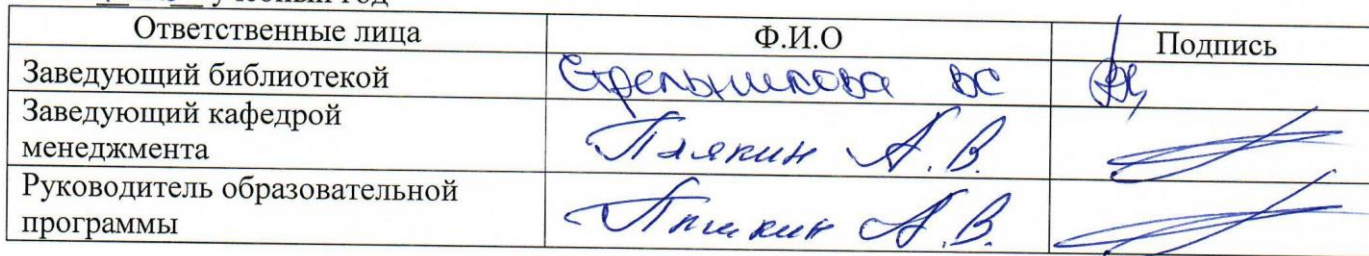 учебный год
Ответственные лица Ф.И.О Подпись
Заведующий библиотекой Стрельникова ВС
Заведующий кафедрой
менеджмента Плякин А.В.
Руководитель образовательной
программы А.В.